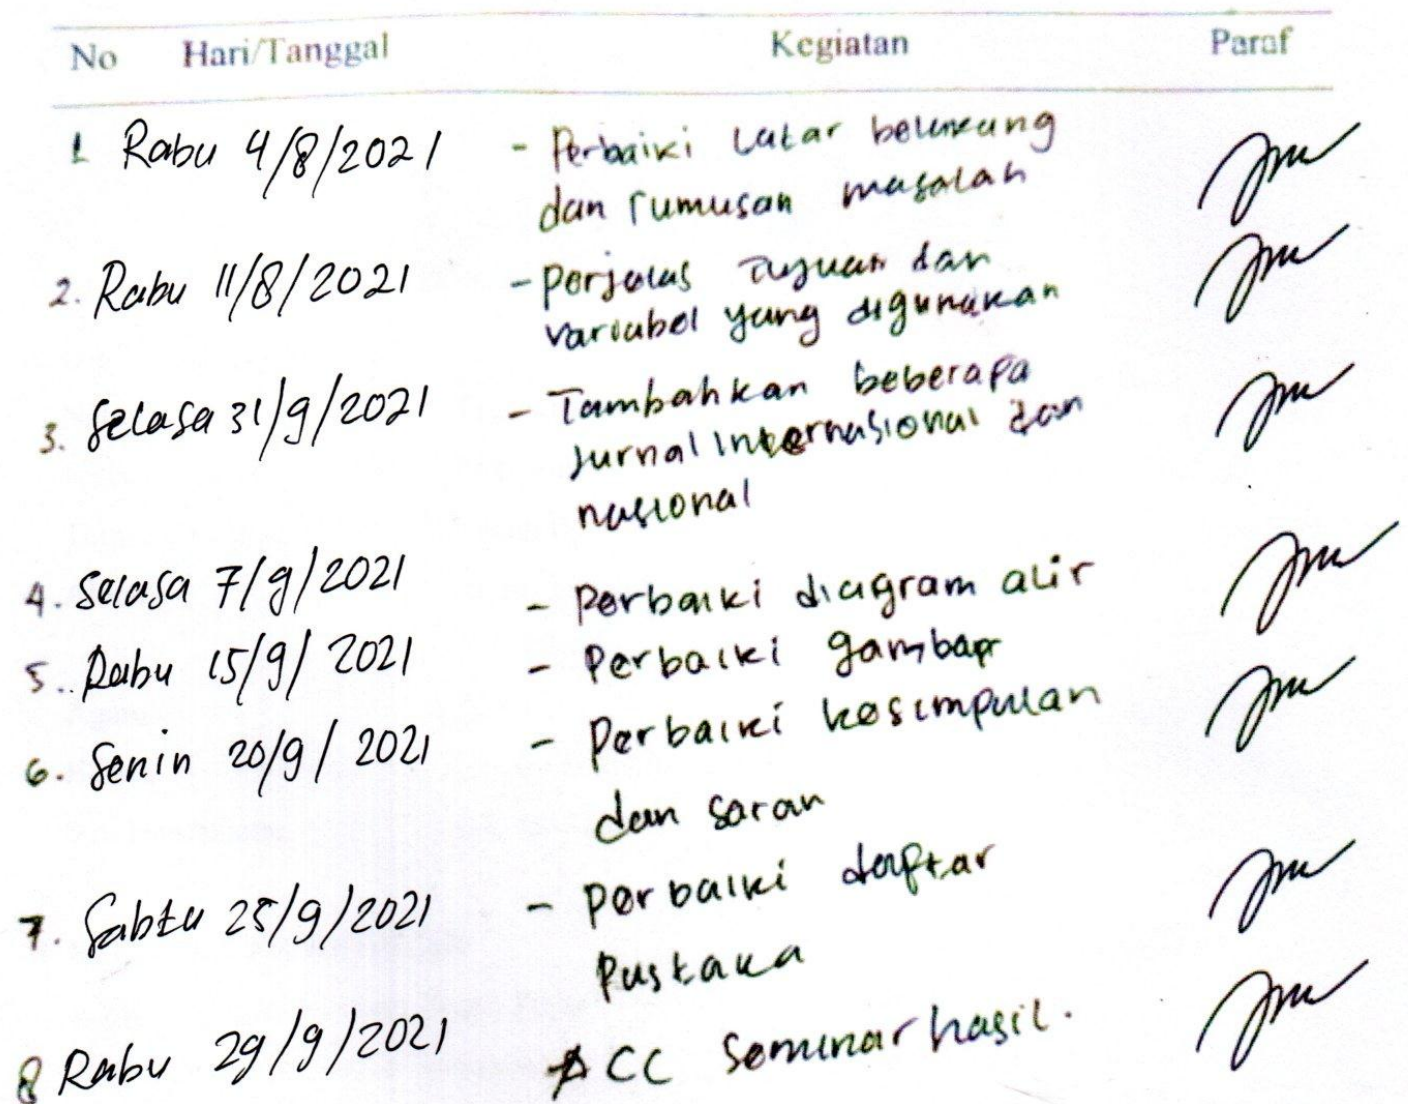 No Hari/Tanggal Kegiatan Paraf
1 Rabu 4/8/2021 - Perbaiki Latar belakang
dan rumusan masalah
2. Rabu 11/8/2021 - Perjelas Tujuan dan
variabel yang digunakan
3. Selasa 31/9/2021 - Tambahkan beberapa
Jurnal Internasional dan
nasional
4. Selasa 7/9/2021 - Perbaiki diagram alir
5. Rabu 15/9/2021 - Perbaiki gambar
6. Senin 20/9/2021 - Perbaiki kesimpulan
dan saran
7. Sabtu 25/9/2021 - Perbaiki daftar
Pustaka
8 Rabu 29/9/2021 ACC Seminar hasil.